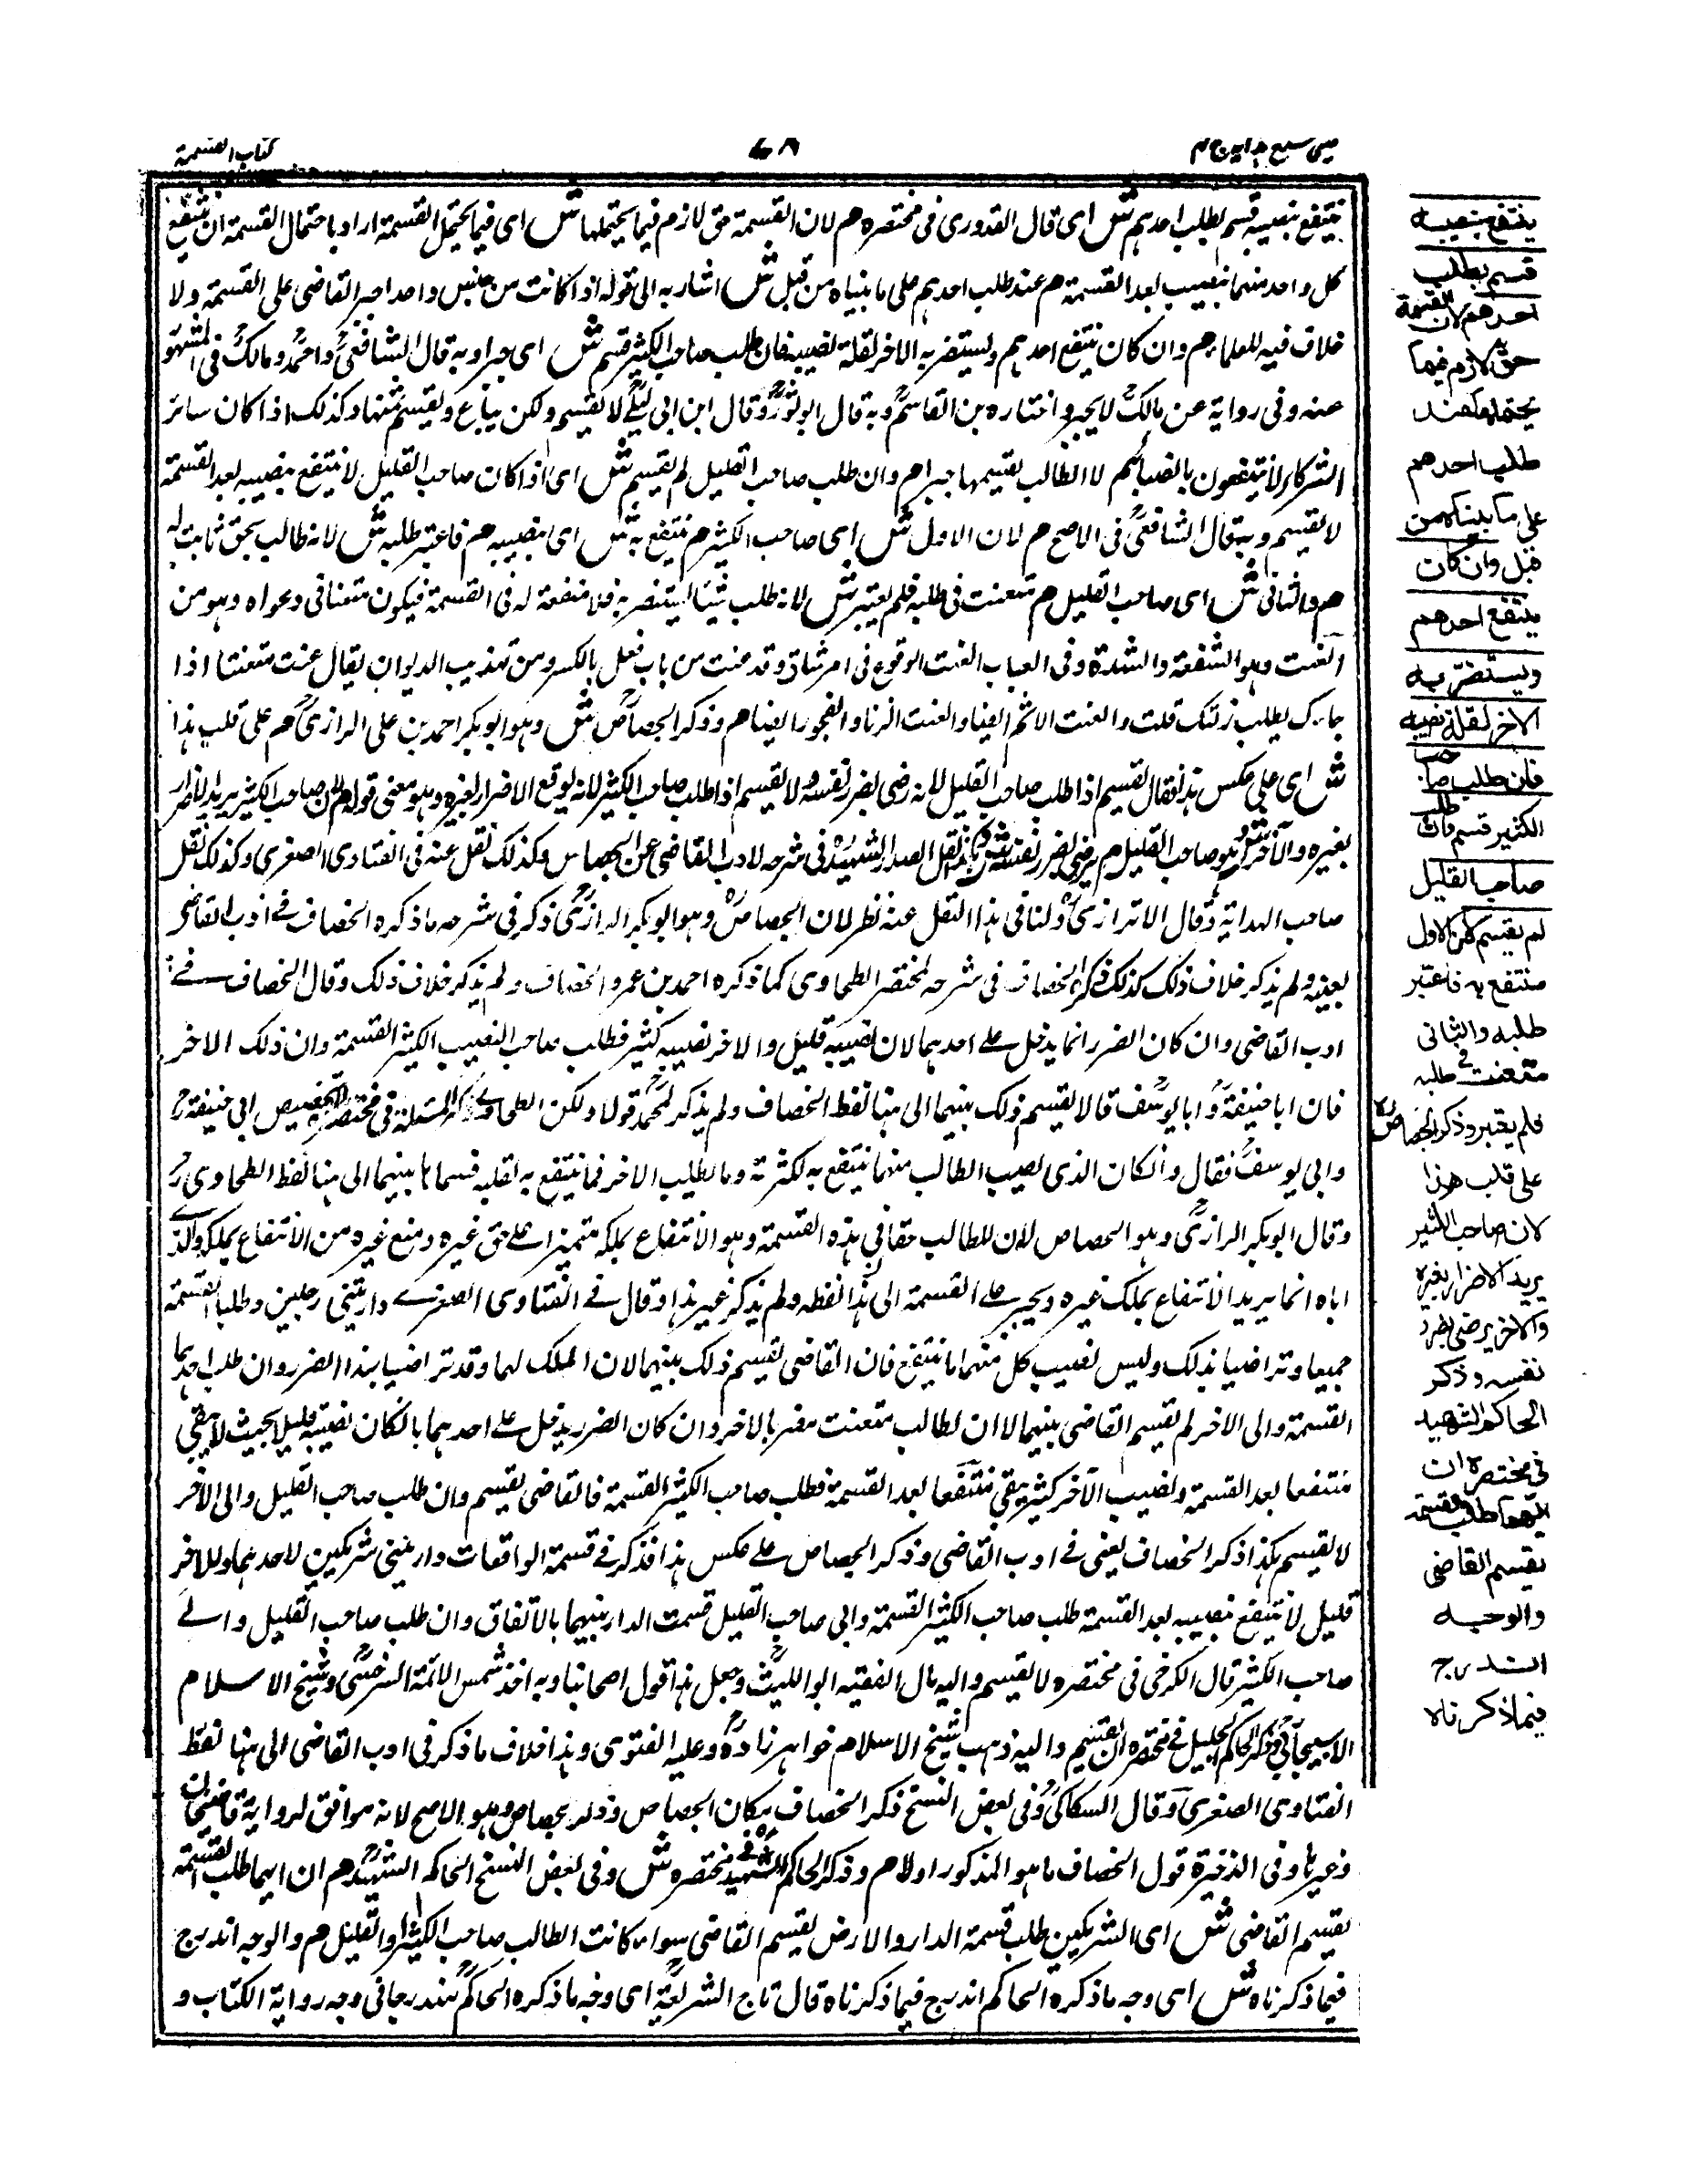 عینی شرح ہدایہ ج ۴
۶۸
كتاب القسمة
ينتفع بنصيبه قسم بطلب احدهم ش اى قال القدورى فى مختصره م لان القسمة حق لازم فيما يحتملها ش اى فيما يحتمل القسمة اراد باحتمال القسمة ان ينتفع
كل واحد منهما بنصيبه بعد القسمة م عند طلب احدهم على ما بيناه من قبل ش اشار به الى قوله اذا كانت من جنس واحد اجبر القاضى على القسمة ولا
خلاف فيه للعلماء م وان كان ينتفع احدهم ويستضر به الاخر لقلة نصيبه فان طلب صاحب الكثير قسم ش اى جبرا وبه قال الشافعىؒ واحمدؒ ومالكؒ فى المشهور
عنه وفى رواية عن مالكؒ لا يجبر واختاره بن القاسمؒ وبه قال ابو ثورؒ وقال ابن ابى ليلىؒ لا يقسم ولكن يباع ويقسم ثمنها وكذلك اذا كان سائر
الشركاء لا ينتفعون بانصبائهم لا الطالب يقسمها جبرا م وان طلب صاحب القليل لم يقسم ش اى اذا كان صاحب القليل لا ينتفع بنصيبه بعد القسمة
لا يقسم وبه قال الشافعىؒ فى الاصح م لان الاول ش اى صاحب الكثير م ينتفع به ش اى بنصيبه م فاعتبر طلبه ش لانه طالب بحق ثابت له
م والثانى ش اى صاحب القليل م متعنت فى طلبه فلم يعتبر ش لانه طلب شيئا ليتضرر به فلا منفعة له فى القسمة فيكون متعنتا فى دعواه وهو من
العنت وهو المشقة والشدة وفى العباب العنت الوقوع فى امر شاق وقد عنت من باب فعل بالكسر ومن تهذيب الديوان يقال عنت متعنتا اذا
جاءك يطلب زلتك قلت والعنت الاثم ايضا والعنت الزنا والفجور ايضا م وذكر الجصاصؒ ش وهو ابو بكر احمد بن على الرازىؒ م على قلب هذا
ش اى على عكس هذا فقال يقسم اذا طلب صاحب القليل لانه رضى بضرر نفسه ولا يقسم اذا طلب صاحب الكثير لانه يوقع الاضرار لغيره وهو معنى قوله م لان صاحب الكثير يريد الاضرار
بغيره والآخر ش وهو صاحب القليل م يرضى بضرر نفسه ش وكذا نقل الصدر الشهيدؒ فى شرحه لادب القاضى عن الجصاص وكذلك نقل عنه فى الفتاوى الصغرى وكذلك نقل
صاحب الهداية وقال الاترازىؒ ولنا فى هذا النقل عنه نظر لان الجصاصؒ وهو ابو بكر الرازىؒ ذكر فى شرحه ما ذكره الخصاف فى ادب القاضى
بعينه ولم يذكر خلاف ذلك كذلك ذكر الخصاف فى شرحه لمختصر الطحاوى كما ذكره احمد بن عمرو الخصاف ولم يذكر خلاف ذلك وقال الخصاف فى
ادب القاضى وان كان الضرر انما يدخل على احدهما لان نصيبه قليل والاخر نصيبه كثير فطلب صاحب النصيب الكثير القسمة وان ذلك الاخر
فان ابا حنيفةؒ وابا يوسفؒ قالا يقسم ذلك بينهما الى هنا لفظ الخصاف ولم يذكر لمحمدؒ قولا ولكن الطحاوى ذكر المسئلة فى مختصره بتخصيص ابى حنيفةؒ
وابى يوسفؒ فقال وانكان الذى يصيب الطالب منهما ينتفع به لكثرته وما يصيب الاخر فما ينتفع به لقلته قسماها بينهما الى هنا لفظ الطحاوىؒ
وقال ابو بكر الرازىؒ وهو الجصاص لان للطالب حقا فى هذه القسمة وهو الانتفاع بملكه متميزا على حق غيره ومنع غيره من الانتفاع بملكه والذى
اباه انما يريد الانتفاع بملك غيره ويجبر على القسمة الى هذا لفظه ولم يذكر غير هذا وقال فى الفتاوى الصغرى دار بين رجلين وطلبا القسمة
جميعا وتراضيا بذلك وليس نصيب كل منهما ما ينتفع فان القاضى يقسم ذلك بينهما لان الملك لهما وقد تراضيا بهذا الضرر وان طلب احدهما
القسمة وابى الاخر لم يقسم القاضى بينهما لا ان الطالب متعنت مضر بالاخر وان كان الضرر يدخل على احدهما بان كان نصيبه قليلا بحيث لا يبقى
منتفعا بعد القسمة ونصيب الآخر كثير يبقى منتفعا بعد القسمة فطلب صاحب الكثير القسمة فالقاضى يقسم وان طلب صاحب القليل وابى الآخر
لا يقسم هكذا ذكر الخصاف يعنى فى ادب القاضى وذكر الجصاص على عكس هذا فذكر فى قسمة الواقعات دار بين شريكين لاحدهما وللاخر
قليل لا ينتفع بنصيبه بعد القسمة طلب صاحب الكثير القسمة وابى صاحب القليل قسمت الدار بينهما بالاتفاق وان طلب صاحب القليل وابى
صاحب الكثير قال الكرخى فى مختصره لا يقسم واليه مال الفقيه ابو الليثؒ وجعل هذا قول اصحابنا وبه اخذ شمس الائمة السرخسىؒ وشيخ الاسلام
الاسبيجابىؒ وذكر الحاكم الجليل فى مختصره ان يقسم واليه ذهب شيخ الاسلام خواهر زادهؒ وعليه الفتوى وهذا خلاف ما ذكر فى ادب القاضى الى هنا لفظ
الفتاوى الصغرى وقال السكاكىؒ وفى بعض النسخ ذكر الخصاف مكان الجصاص وذكر الجصاص وهو الاصح لانه موافق لرواية قاضيخان
وغيرها وفى الذخيرة قول الخصاف ما هو المذكور اولا م وذكر الحاكم الشهيدؒ فى مختصره ش وفى بعض النسخ الحاكم الشهيدؒ م ان ايهما طلب القسمة
يقسم القاضى ش اى الشريكين طلب قسمة الدار والارض يقسم القاضى سواء كانت الطالب صاحب الكثير او القليل م والوجه اندرج
فيما ذكرناه ش اى وجه ما ذكره الحاكم اندرج فيما ذكرناه قال تاج الشريعةؒ اى وجه ما ذكره الحاكمؒ مندرجا فى وجه رواية الكتاب و
ينتفع بنصيبه
قسم بطلب
احدهم لان القسمة
حق لازم فيما
يحتملها عند
طلب احدهم
على ما بيناه من
قبل وان كان
ينتفع احدهم
ويستضر به
الاخر لقلة نصيبه
فان طلب صاحب
الكثير قسم وان طلب
صاحب القليل
لم يقسم لان الاول
منتفع به فاعتبر
طلبه والثانى
متعنت فى طلبه
فلم يعتبر وذكر الجصاص
على قلب هذا
لان صاحب الكثير
يريد الاضرار بغيره
والاخر يرضى بضرر
نفسه وذكر
الحاكم الشهيد
فى مختصره ان
ايهما طلب القسمة
يقسم القاضى
والوجه
اندرج
فيما ذكرناه